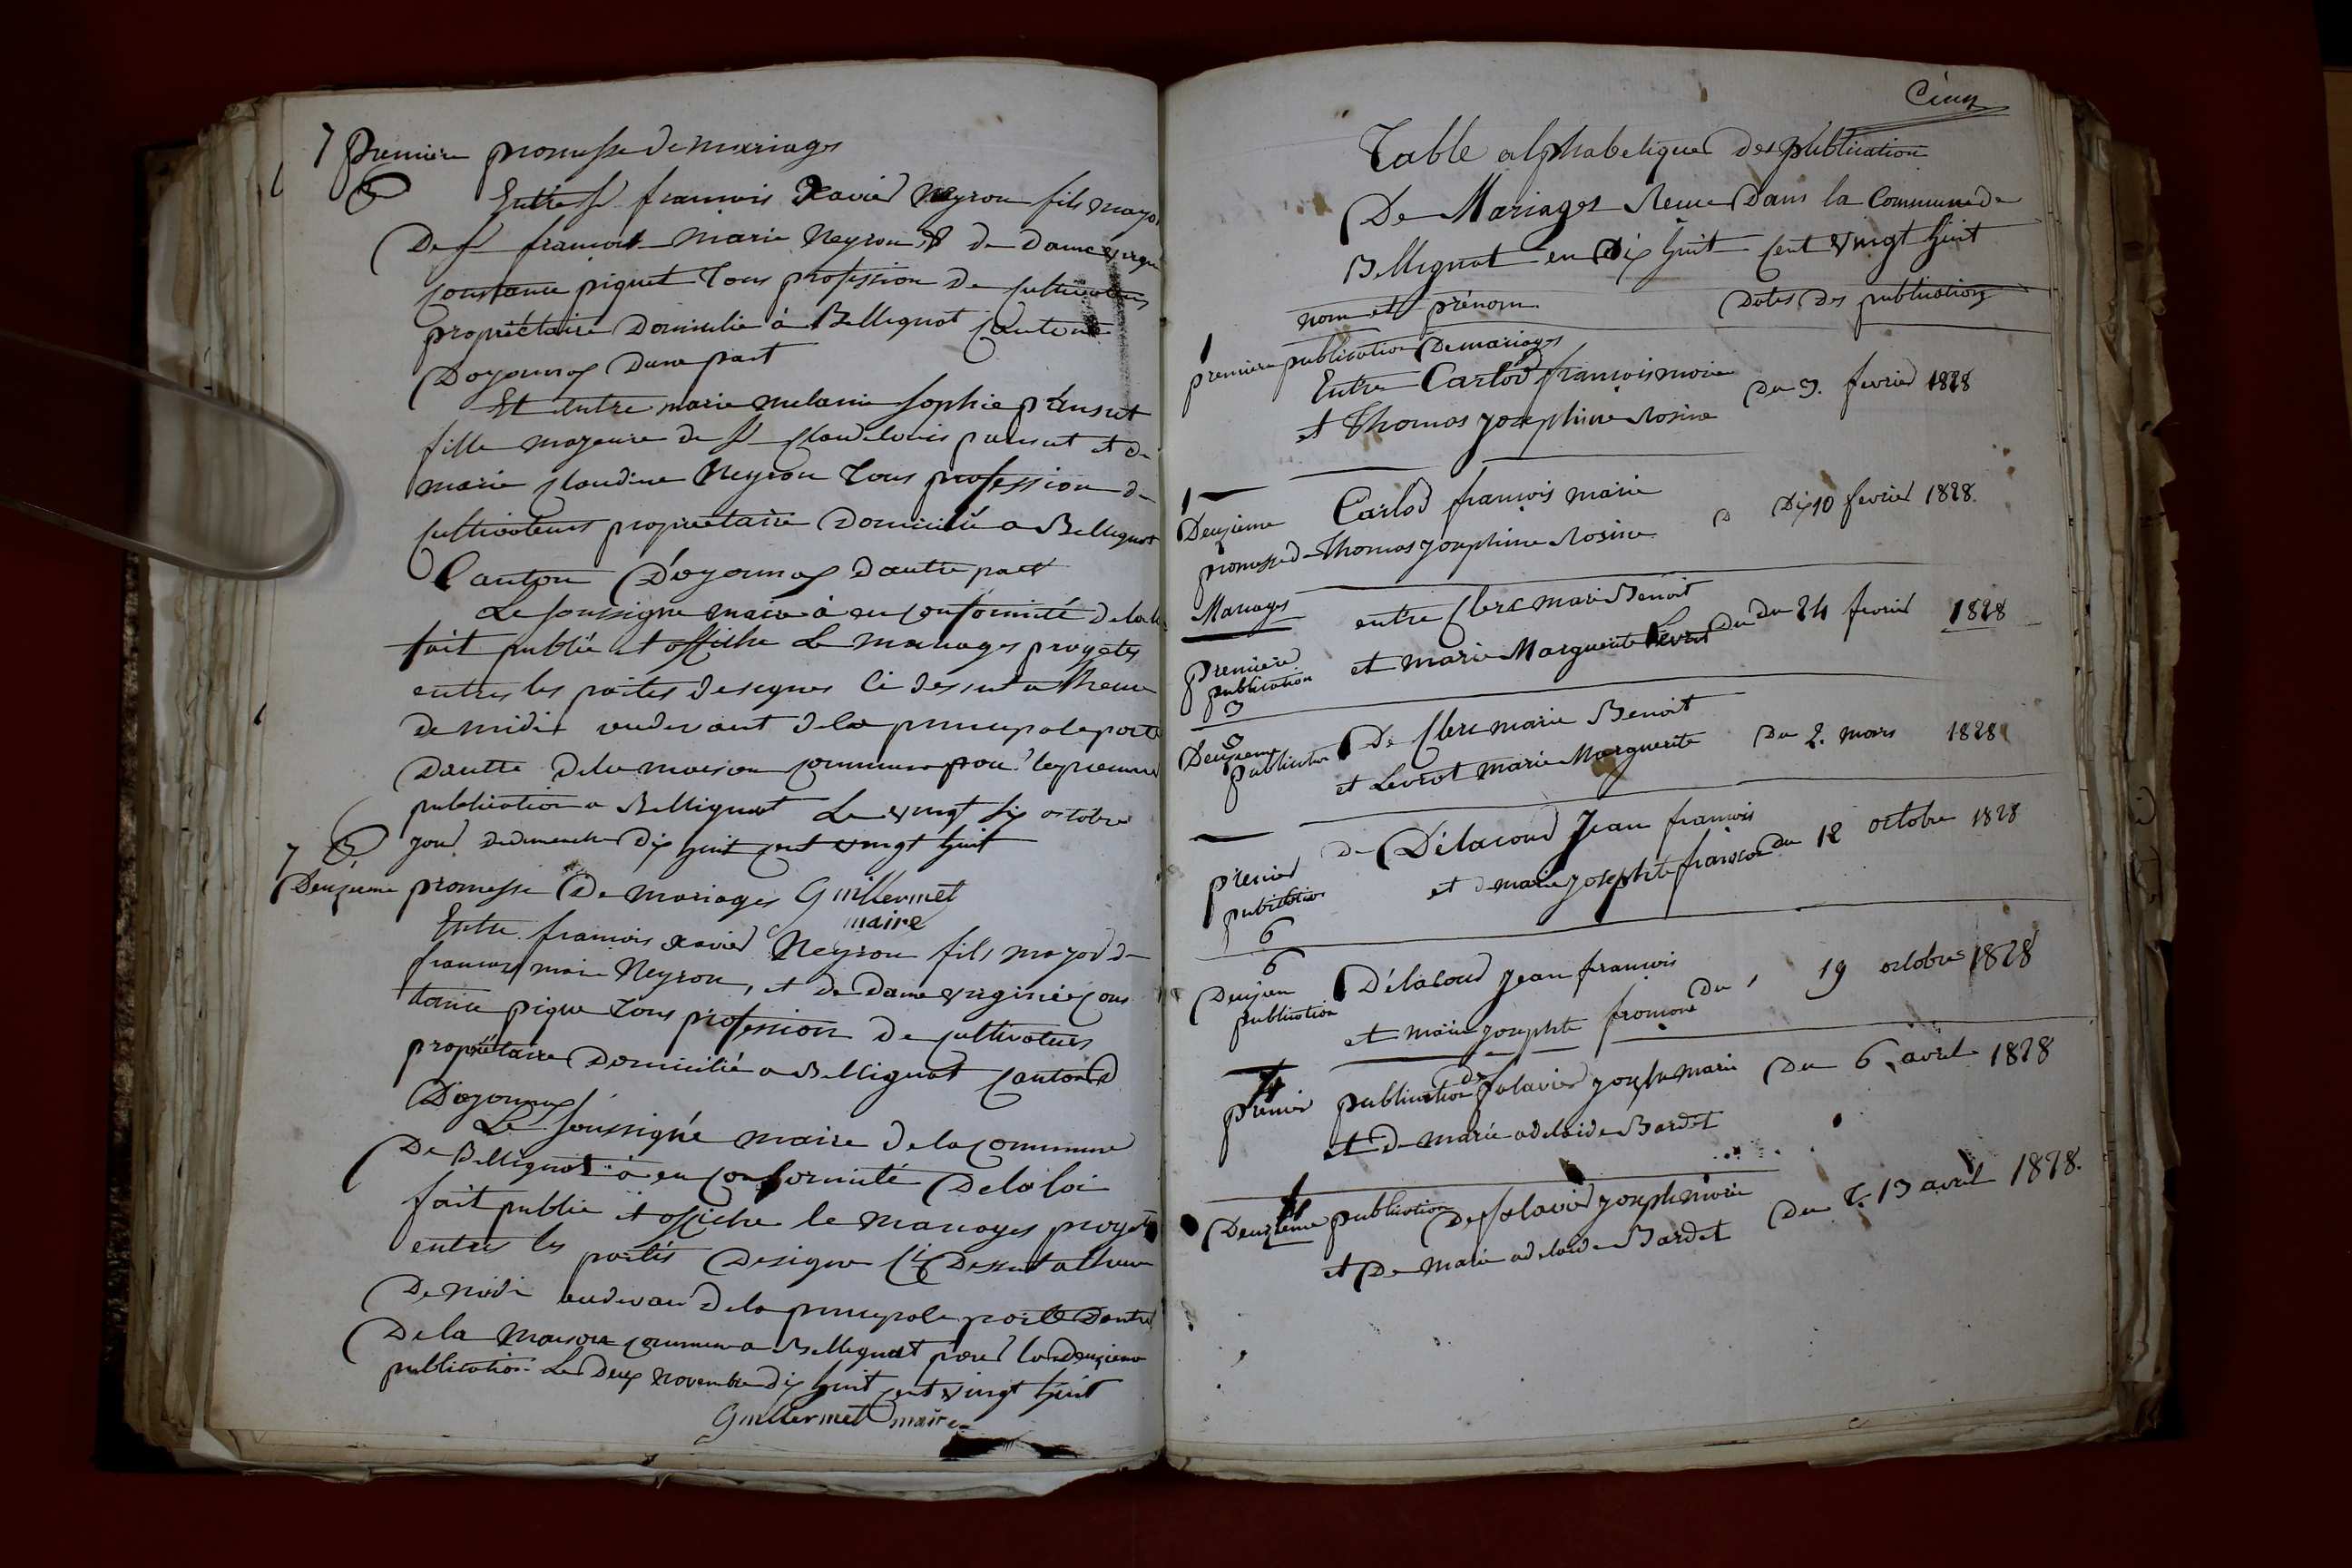 7 premiere promesse de mariages
Entre Sr francois Xavier Neyron fils mayor
De Sr francois marie Neyron & de dame virgni
Constance piquet tous profession de cultivateurs
propriétaire Domicilié à Bellignat Canton
Doyonnax dune part
Et entre marie melanie sophie pansut
fille mayeure de Sr Claude louis pansut et de
marie Claudine Neyron tous profession de
cultivateurs proprietaire Domicilié a Bellignat
Canton d'oyonnax dautre part
Le soussigne maire à en conformité de la loi
fait publié et affiche le mariages proyetés
entres les partes designes Ci dessut a lheure
de midit audevant de la principale porte
Dantré de la maison commune pour le premiere
publication a Bellignat Le vingt six octobre
jour dedimenche dix huit cent vingt huit
7
Deuxieme promesse De mariages Guillermet
maire
Entre francois xavier Neyron fils mayor de
francois marie Neyron, et de Dame virginie Cons
tance pique tous profession de cultivateurs
propriétaire Domicilié a Bellignat Canton d
Doyonnax
Le soussigné maire de la commune
De Bellignat à en conformité De la loi
fait publié et affiche le mariages proyetés
entres les partés Designe Ci Dessut a lheure
De midi audevant de la principale porte Dantré
De la maison commune a Bellignat pour la deuxieme
publication Le Deux Novembre dix huit cent vingt huit
Guillermet maire
Cinq
Table alphabetique des publication
De Mariages Reçue Dans la Commune de
Bellignat en Dix huit Cent vingt huit
nom et prénom Dates Des publications
1
premiere publication De mariages
Entre Carlod francois marie
et Thomas josephine Rosine Du 3. fevrier 1828
1
Deuxieme Carlod francois marie
promesse de Thomas josephine Rosine Dix 10 fevrier 1828.
Mariages entre Clerc marie Benoit
premiere publication et marie Marguerite Levrat du 24 fevrier 1828
3
3
Deuxieme publication De Clerc marie Benoit
et Levrat marie Marguerite Du 2. mars 1828
premier publication de Délacour Jean francois
et de marie josephte francon du 12 octobre 1828
6
6
Deuxiem publication Délacour Jean francois
et marie josephte du 19 octobre 1828
4
premier publication de Salavier joseph marie Du 6 avril 1828
et de marie adelaide Bardet
4
Deuxieme publication De Salavier joseph marie
et De marie adelaide Bardet Du 13 avril 1828.